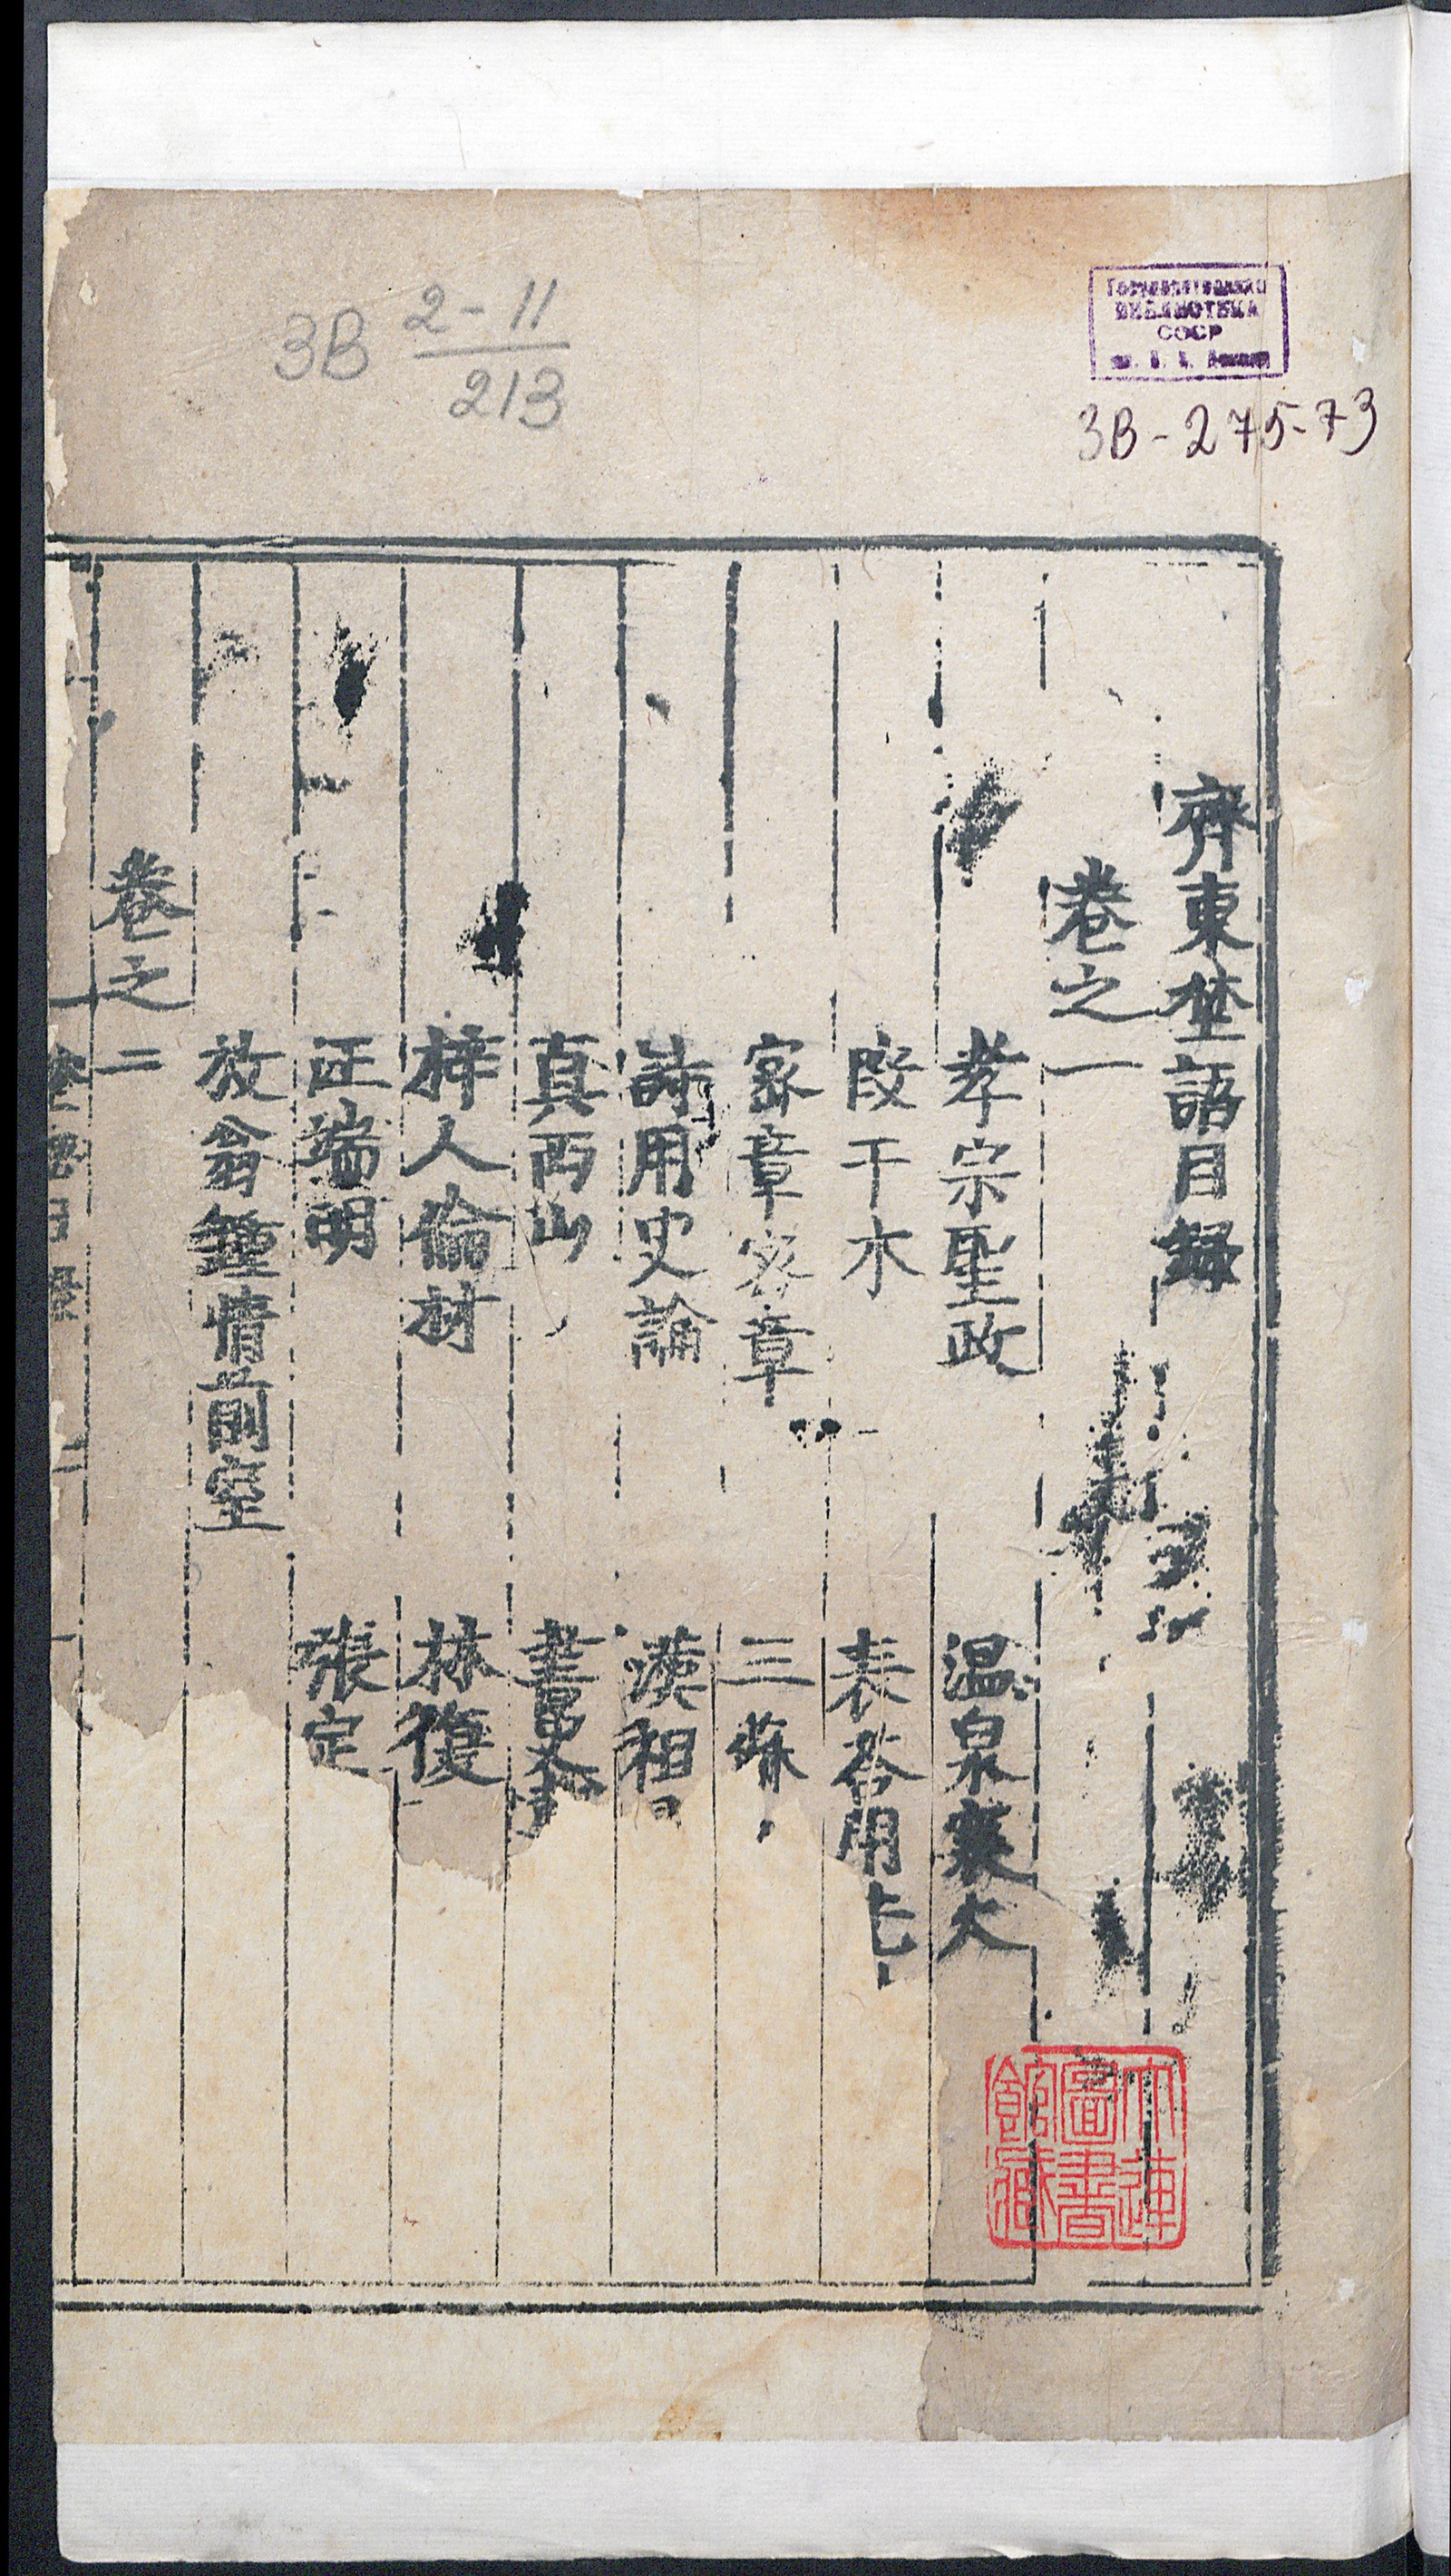 3B 2-11
213
Государственная
БИБЛИОТЕКА
СССР
им. В. И. Ленина
3B-275-73
齊東埜語目録
卷之一
孝宗聖政 温泉寒火
段干木 表荅用
密章宻章 三蘇
詩用史論 漢租
真西山 書
梓人倫材 林復
汪端明 張定
放翁鍾情前室
卷之二
大連
圖書
館藏